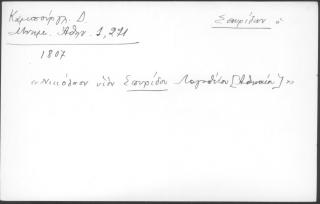 Καμπούρογλ. Δ. Σπυρίδων ὁ
Μνημ. Ἀθην. 1, 271
1807
«Νικόλαον υἱὸν Σπυρίδου Λογοθέτου [Ἀθηναίου]»